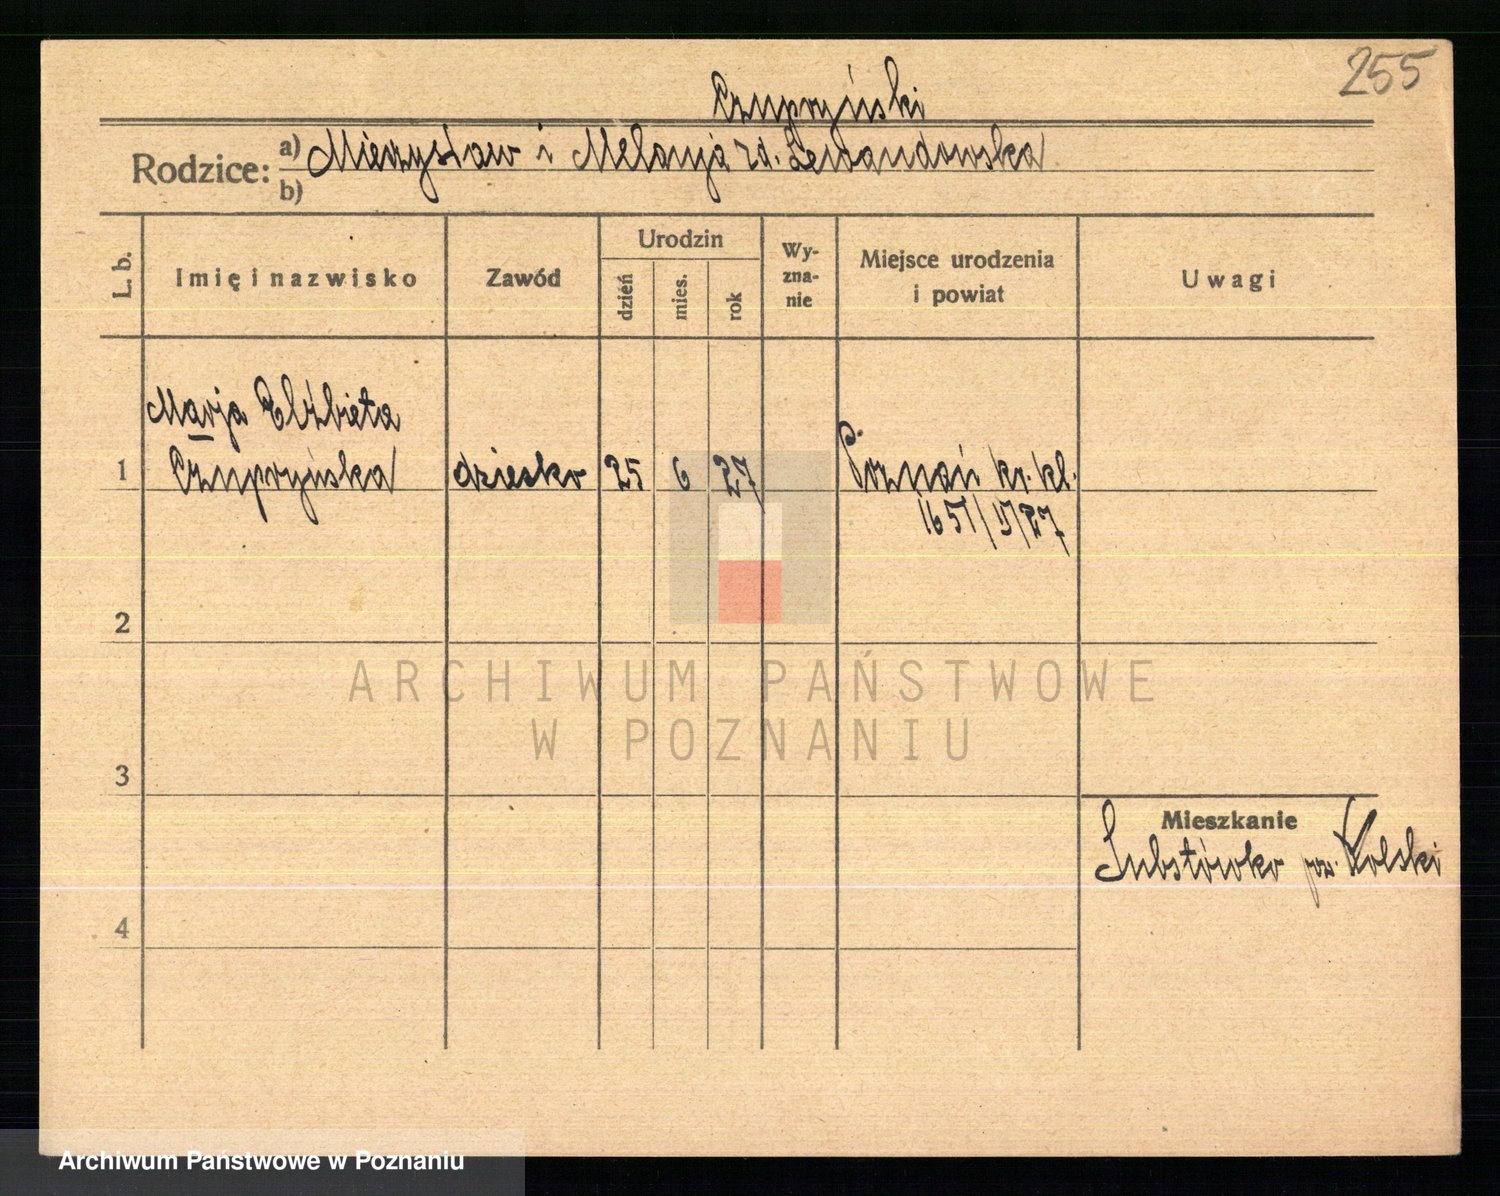 255
Czupryński
Rodzice: a) Mieczysław i Melanja zd. Lewandowska
b)
L. b.
Imię i nazwisko
Zawód
Urodzin
dzień
mies.
rok
Wy-
zna-
nie
Miejsce urodzenia
i powiat
Uwagi
Marja Elżbieta
1 Czupryńska dziecko 25 6 27 Poznań kr. kl.
1651/V/27
2
ARCHIWUM PAŃSTWOWE
W POZNANIU
3
Mieszkanie
pow. Kolski
4
Archiwum Państwowe w Poznaniu